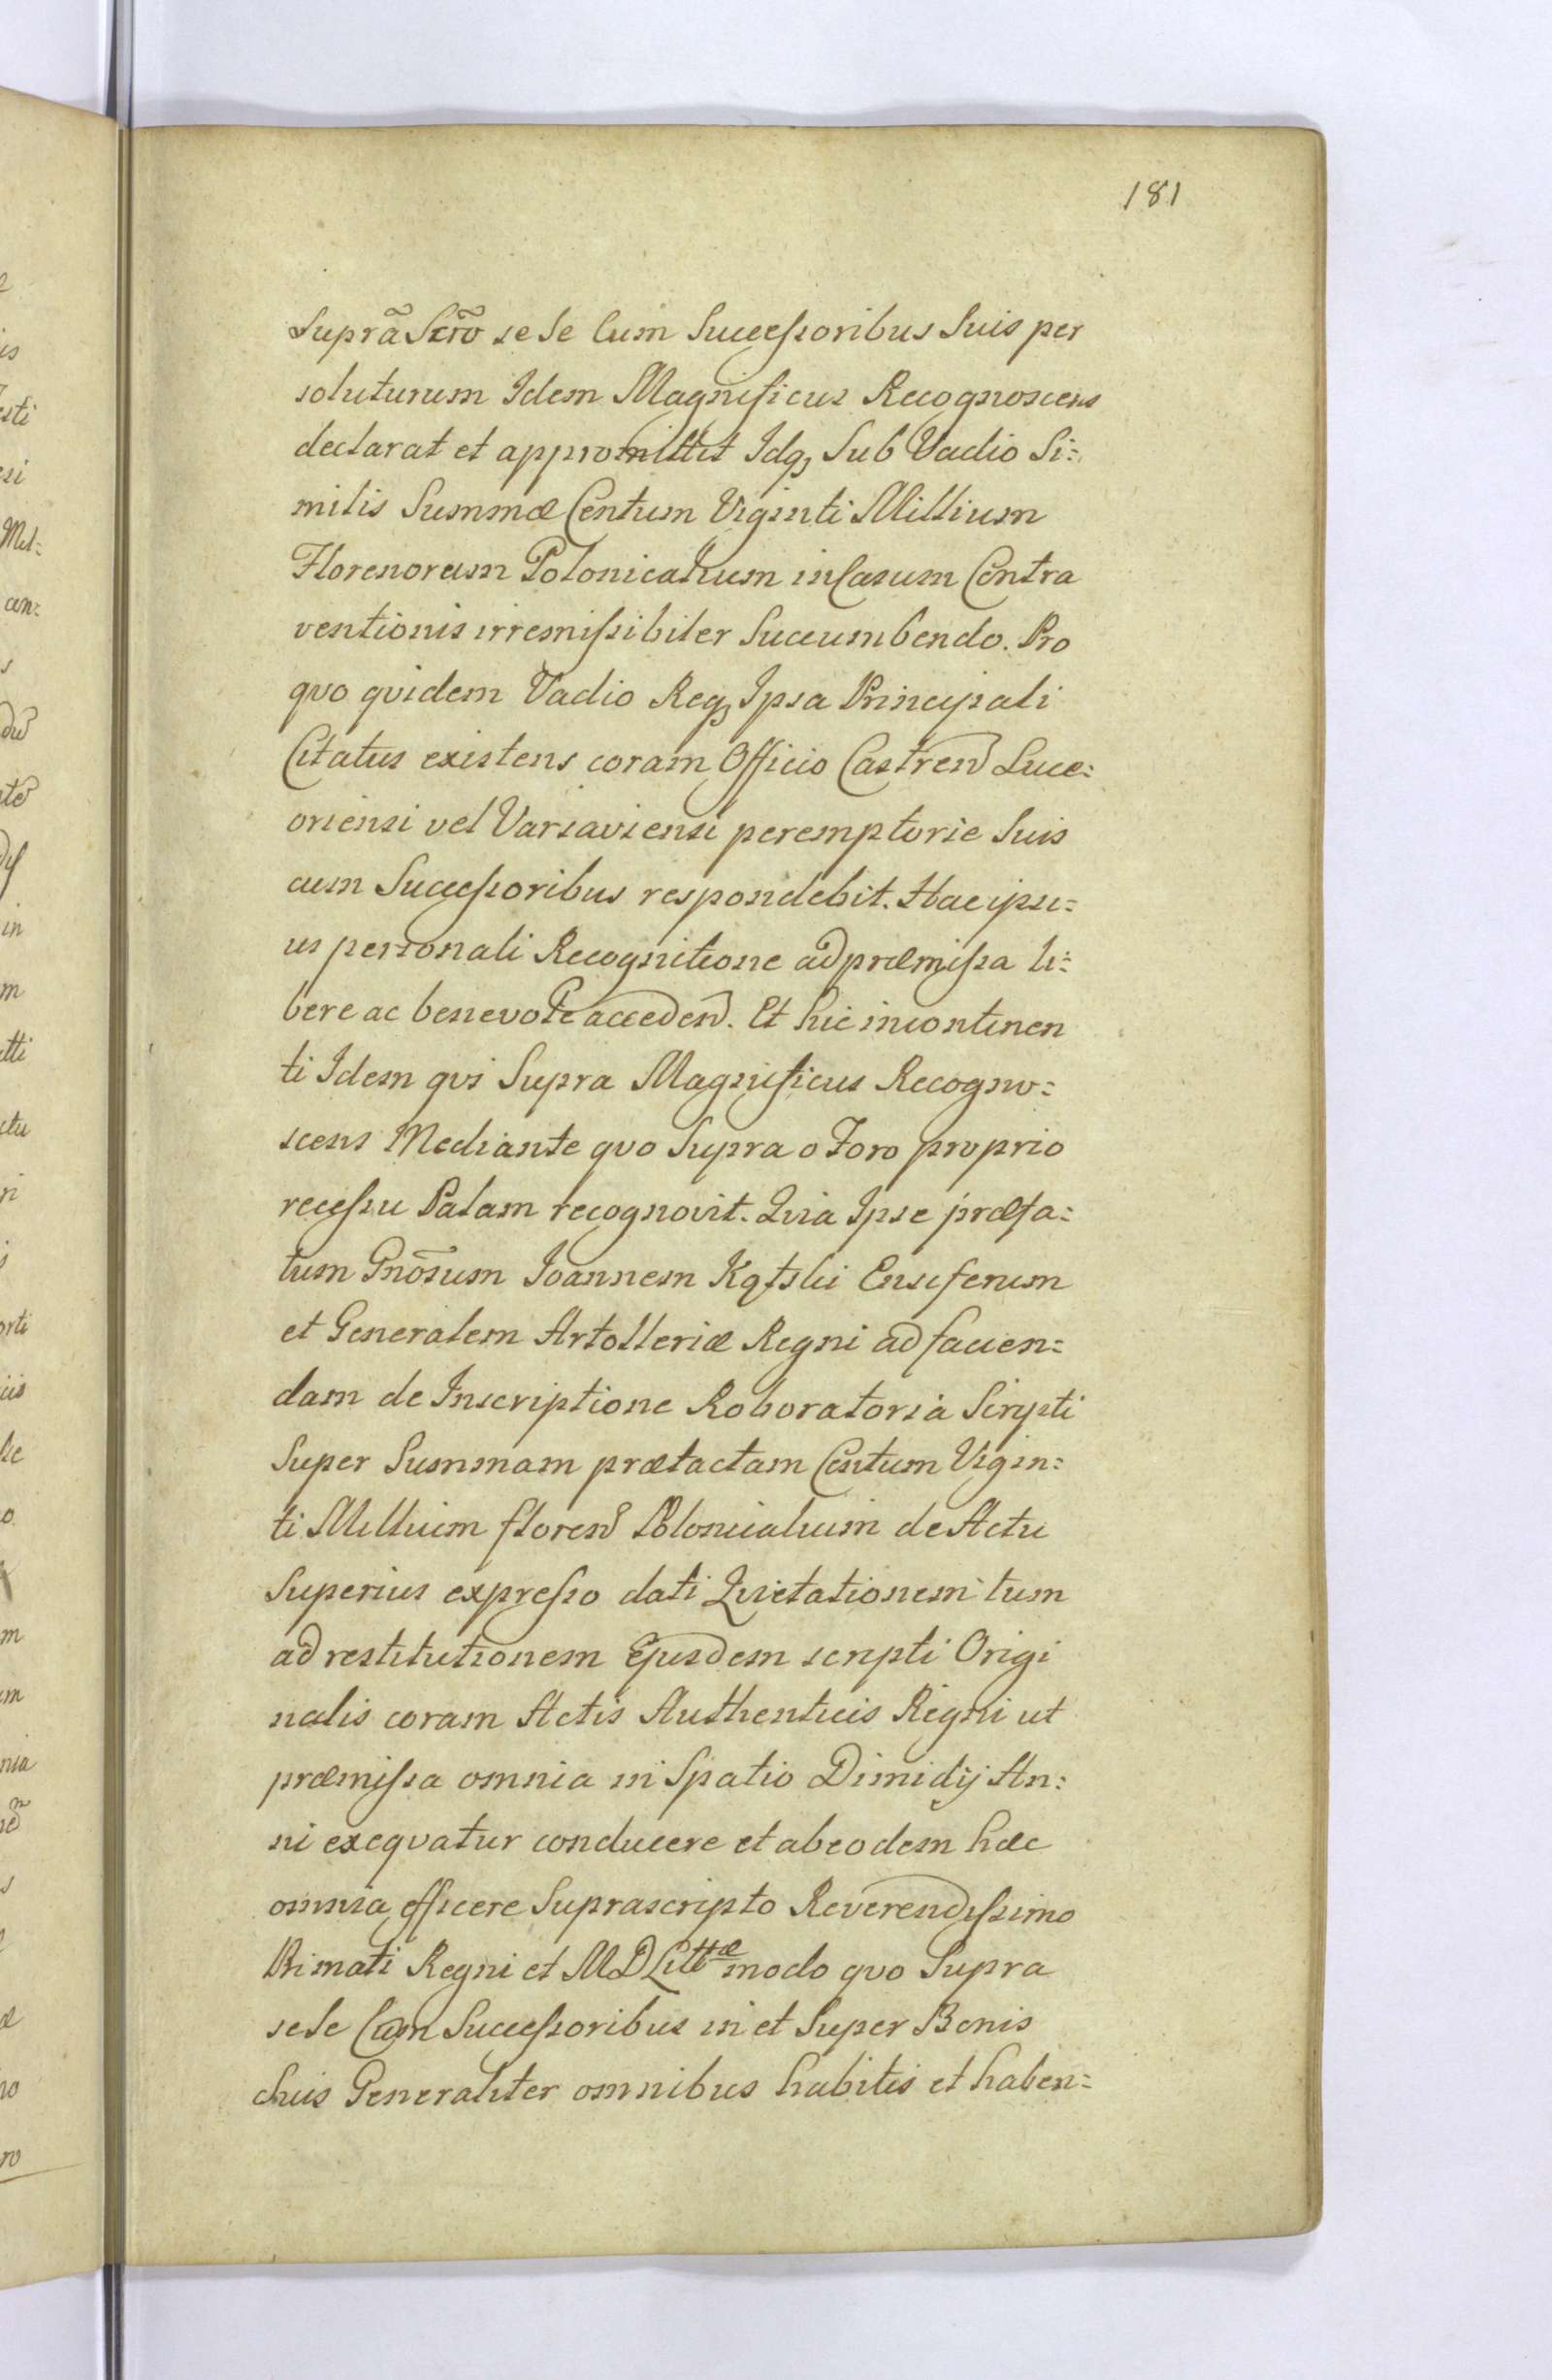 181
Supra Scro sese Cum Successoribus Suis per
soluturum Idem Magnificus Recognoscens
declarat et appromittit Idq, Sub Vadio Si:
milis Summæ Centum Viginti Millium
Florenorum Polonicalium in Casum Contra
ventionis irremissibiliter Succumbendo. Pro
qvo qvidem Vadio Req, Ipsa Principali
Citatus existens coram Officio Castren Luce:
oriensi vel Varsaviensi peremptorie Suis
cum Successoribus respondebit. Hac ipsi:
us personali Recognitione ad præmissa li:
bere ac benevole acceden. Et hic incontinen
ti Idem qvi Supra Magnificus Recogno:
scens Mediante qvo Supra o Foro proprio
recessu Palam recognovit. Qvia Ipse præfa:
tum Gnosum Joannem Kqtski Ensiferum
et Generalem Artolleriæ Regni ad facien:
dam de Inscriptione Roboratoria Scripti
Super Summam prætactam Centum Vigin:
ti Millium floren Polonicalium de Actu
Superius expresso dati Qvietationem tum
ad restitutionem Ejusdem scripti Origi
nalis coram Actis Authenticis Regni ut
præmissa omnia in Spatio Dimidij An:
ni exeqvatur conducere et ab eodem hæc
omnia efficere Suprascripto Reverendissimo
Primati Regni et M D Littæ modo qvo Supra
sese Cum Successoribus in et Super Bonis
Suis Generaliter omnibus habitis et haben: